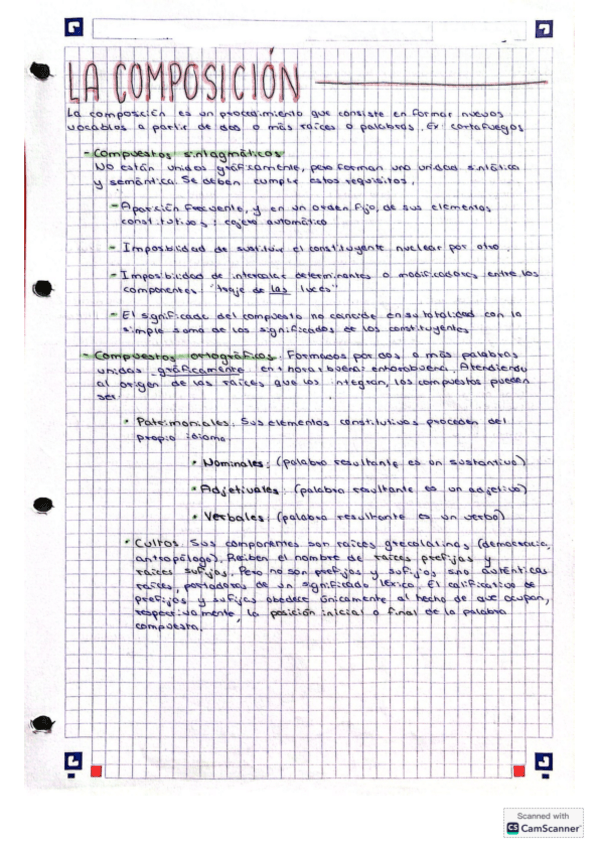 LA COMPOSICIÓN
La composición es un procedimiento que consiste en formar nuevos
vocablos a partir de dos o más raíces o palabras. Ex: cortafuegos
- Compuestos sintagmáticos
No están unidos gráficamente, pero forman una unidad sintática
y semántica. Se deben cumplir estos requisitos.
- Aparición frecuente, y en un orden fijo, de sus elementos
constitutivos: cajero automático
- Imposibilidad de sustituir el constituyente nuclear por otro.
- Imposibilidad de intercalar determinantes o modificadores entre los
componentes "traje de las luces"
- El significado del compuesto no coincide en su totalidad con la
simple soma de los significados de los constituyentes
- Compuestos ortográficos. Formados por dos o más palabras
unidas gráficamente en+hora+buena: enhorabuena. Atendiendo
al origen de las raíces que los integran, los compuestos pueden
ser:
• Patrimoniales: Sus elementos constitutivos proceden del
propio idioma.
• Nominales: (palabra resultante es un sustantivo)
• Adjetivales: (palabra resultante es un adjetivo)
• Verbales: (palabra resultante es un verbo)
• Cultos. Sus componentes son raíces grecolatinas (democracia,
antropólogo). Reciben el nombre de raíces prefijas y
raíces sufijas. Pero no son prefijos y sufijos sino auténticas
raíces, portadoras de un significado léxico. El calificativo de
prefijos y sufijos obedece únicamente al hecho de que ocupan,
respectivamente, la posición inicial o final de la palabra
compuesta.
Scanned with
CS CamScanner